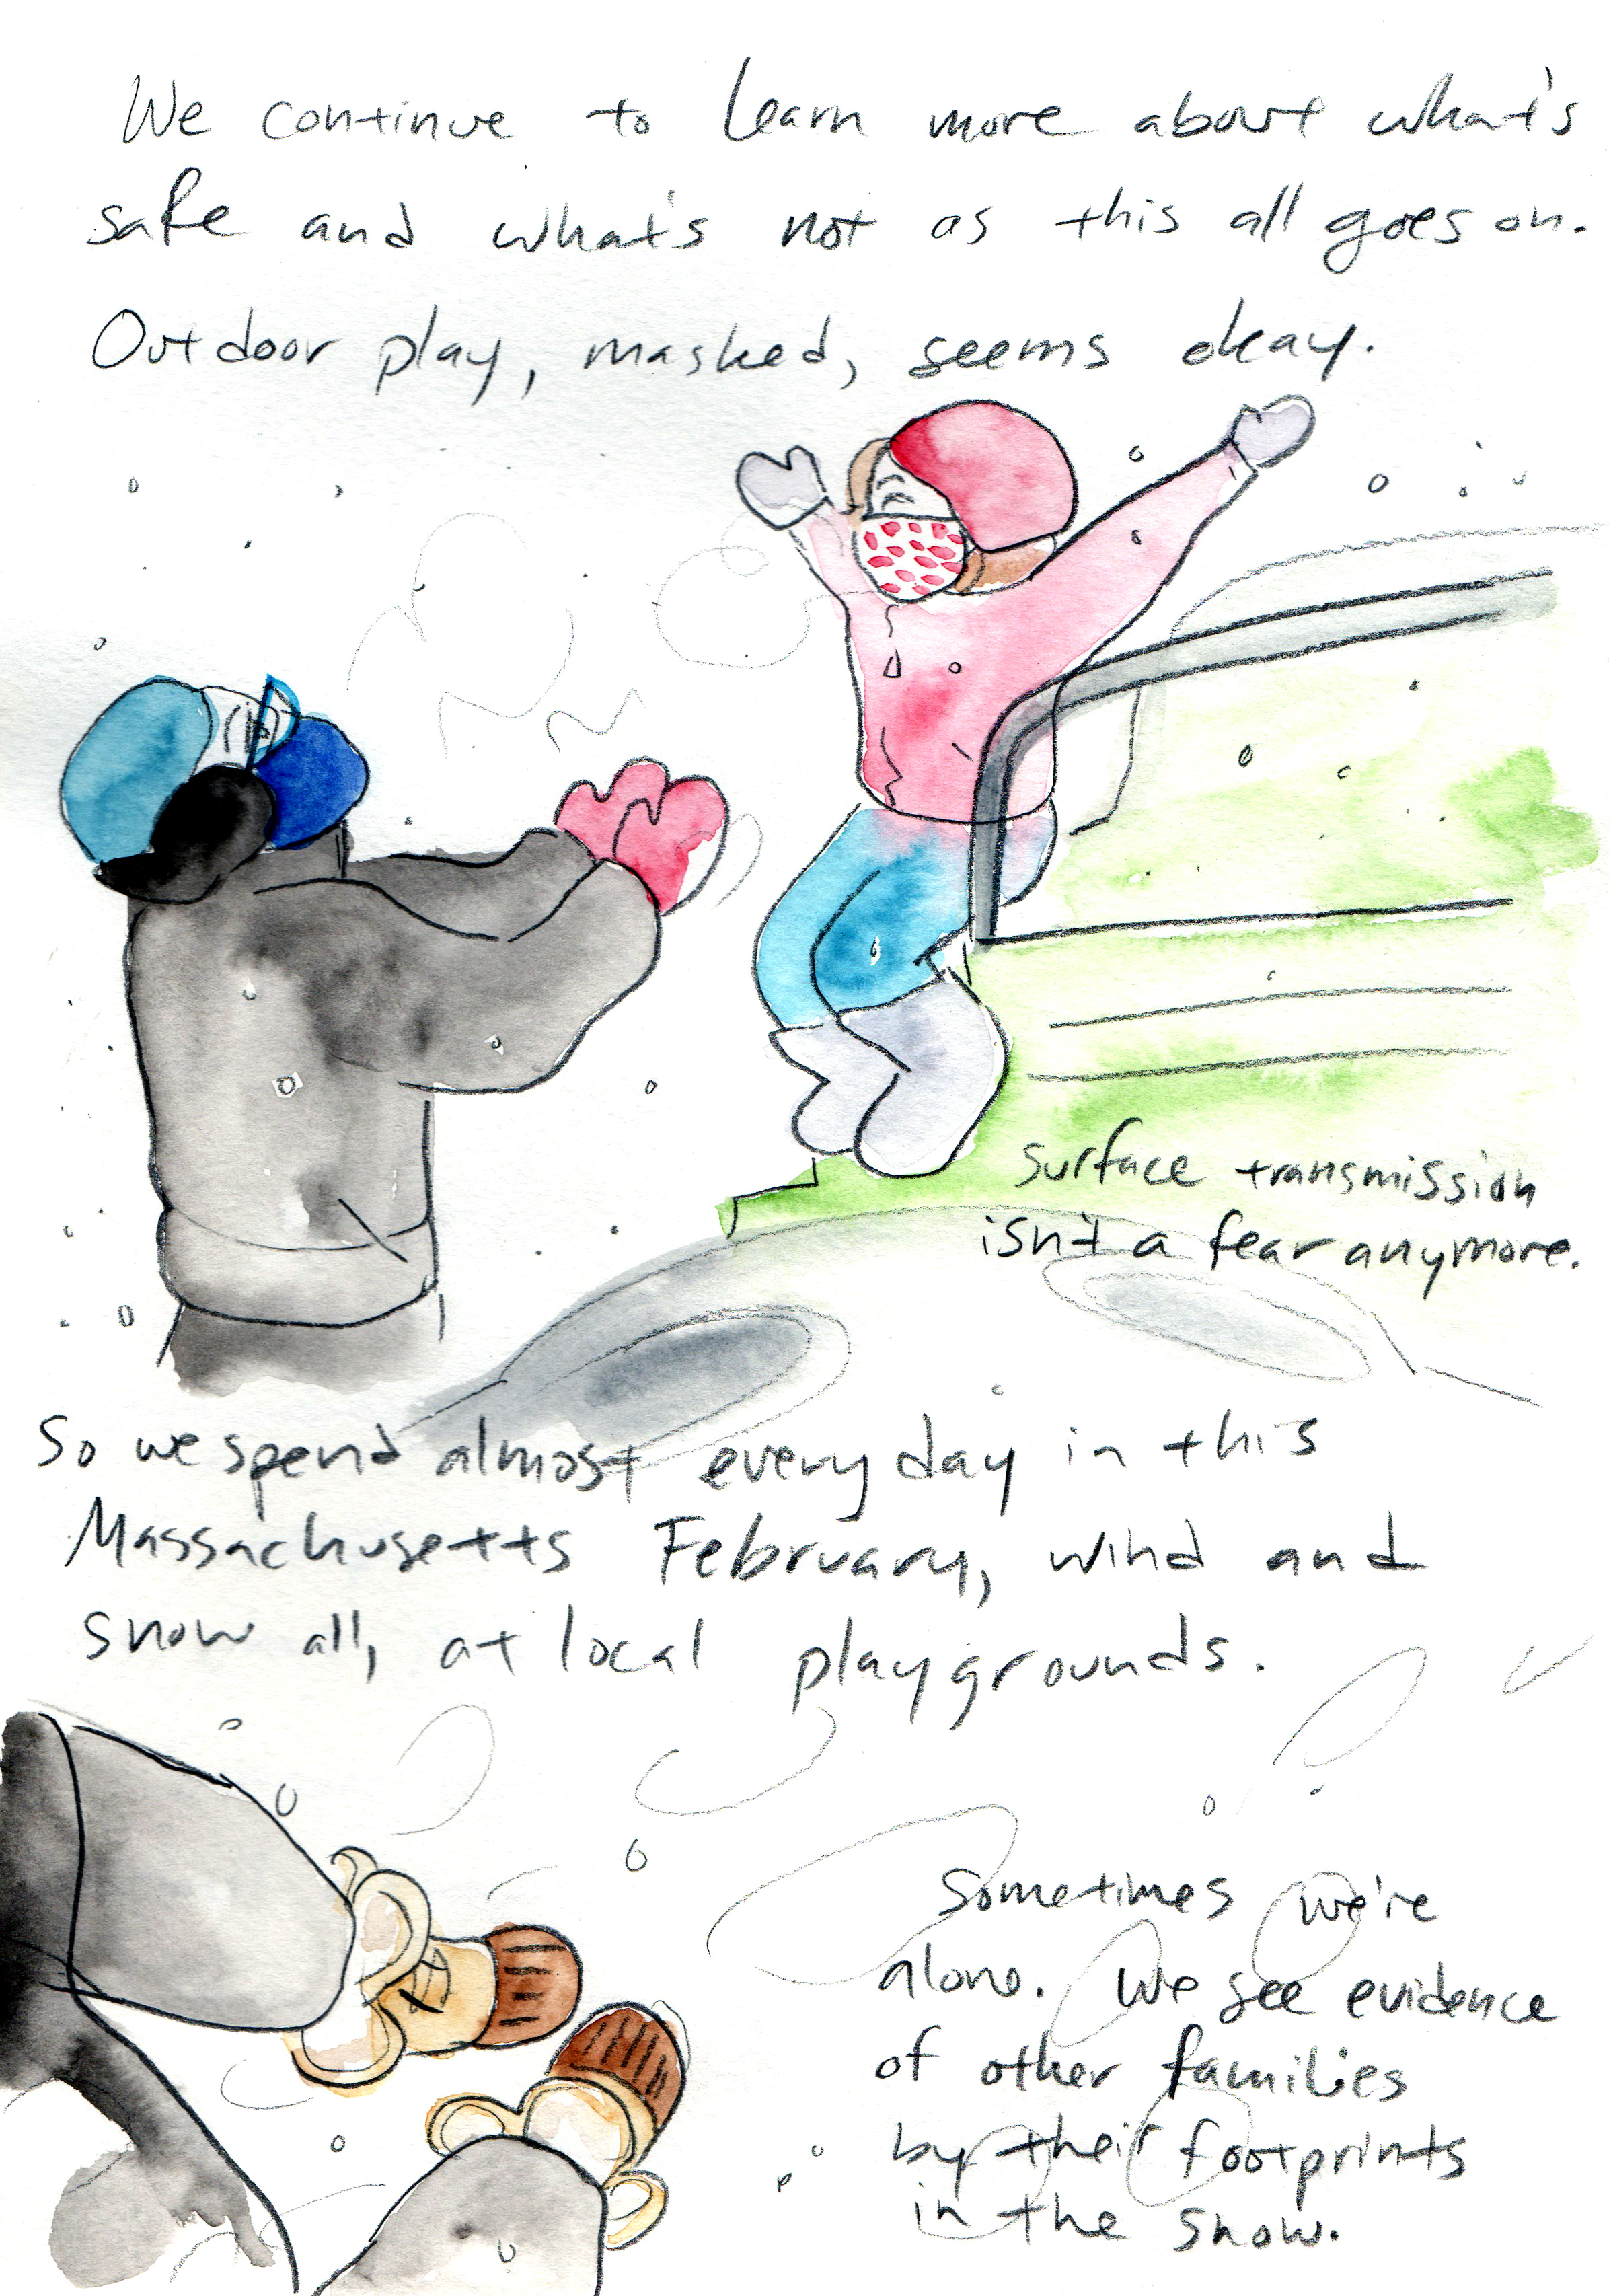 We continue to learn more about what's
safe and what's not as this all goes on.
Outdoor play, masked, seems okay.
surface transmission
isn't a fear anymore.
So we spend almost every day in this
Massachusetts February, wind and
snow all, at local playgrounds.
Sometimes we're
alone. We see evidence
of other families
by their footprints
in the snow.